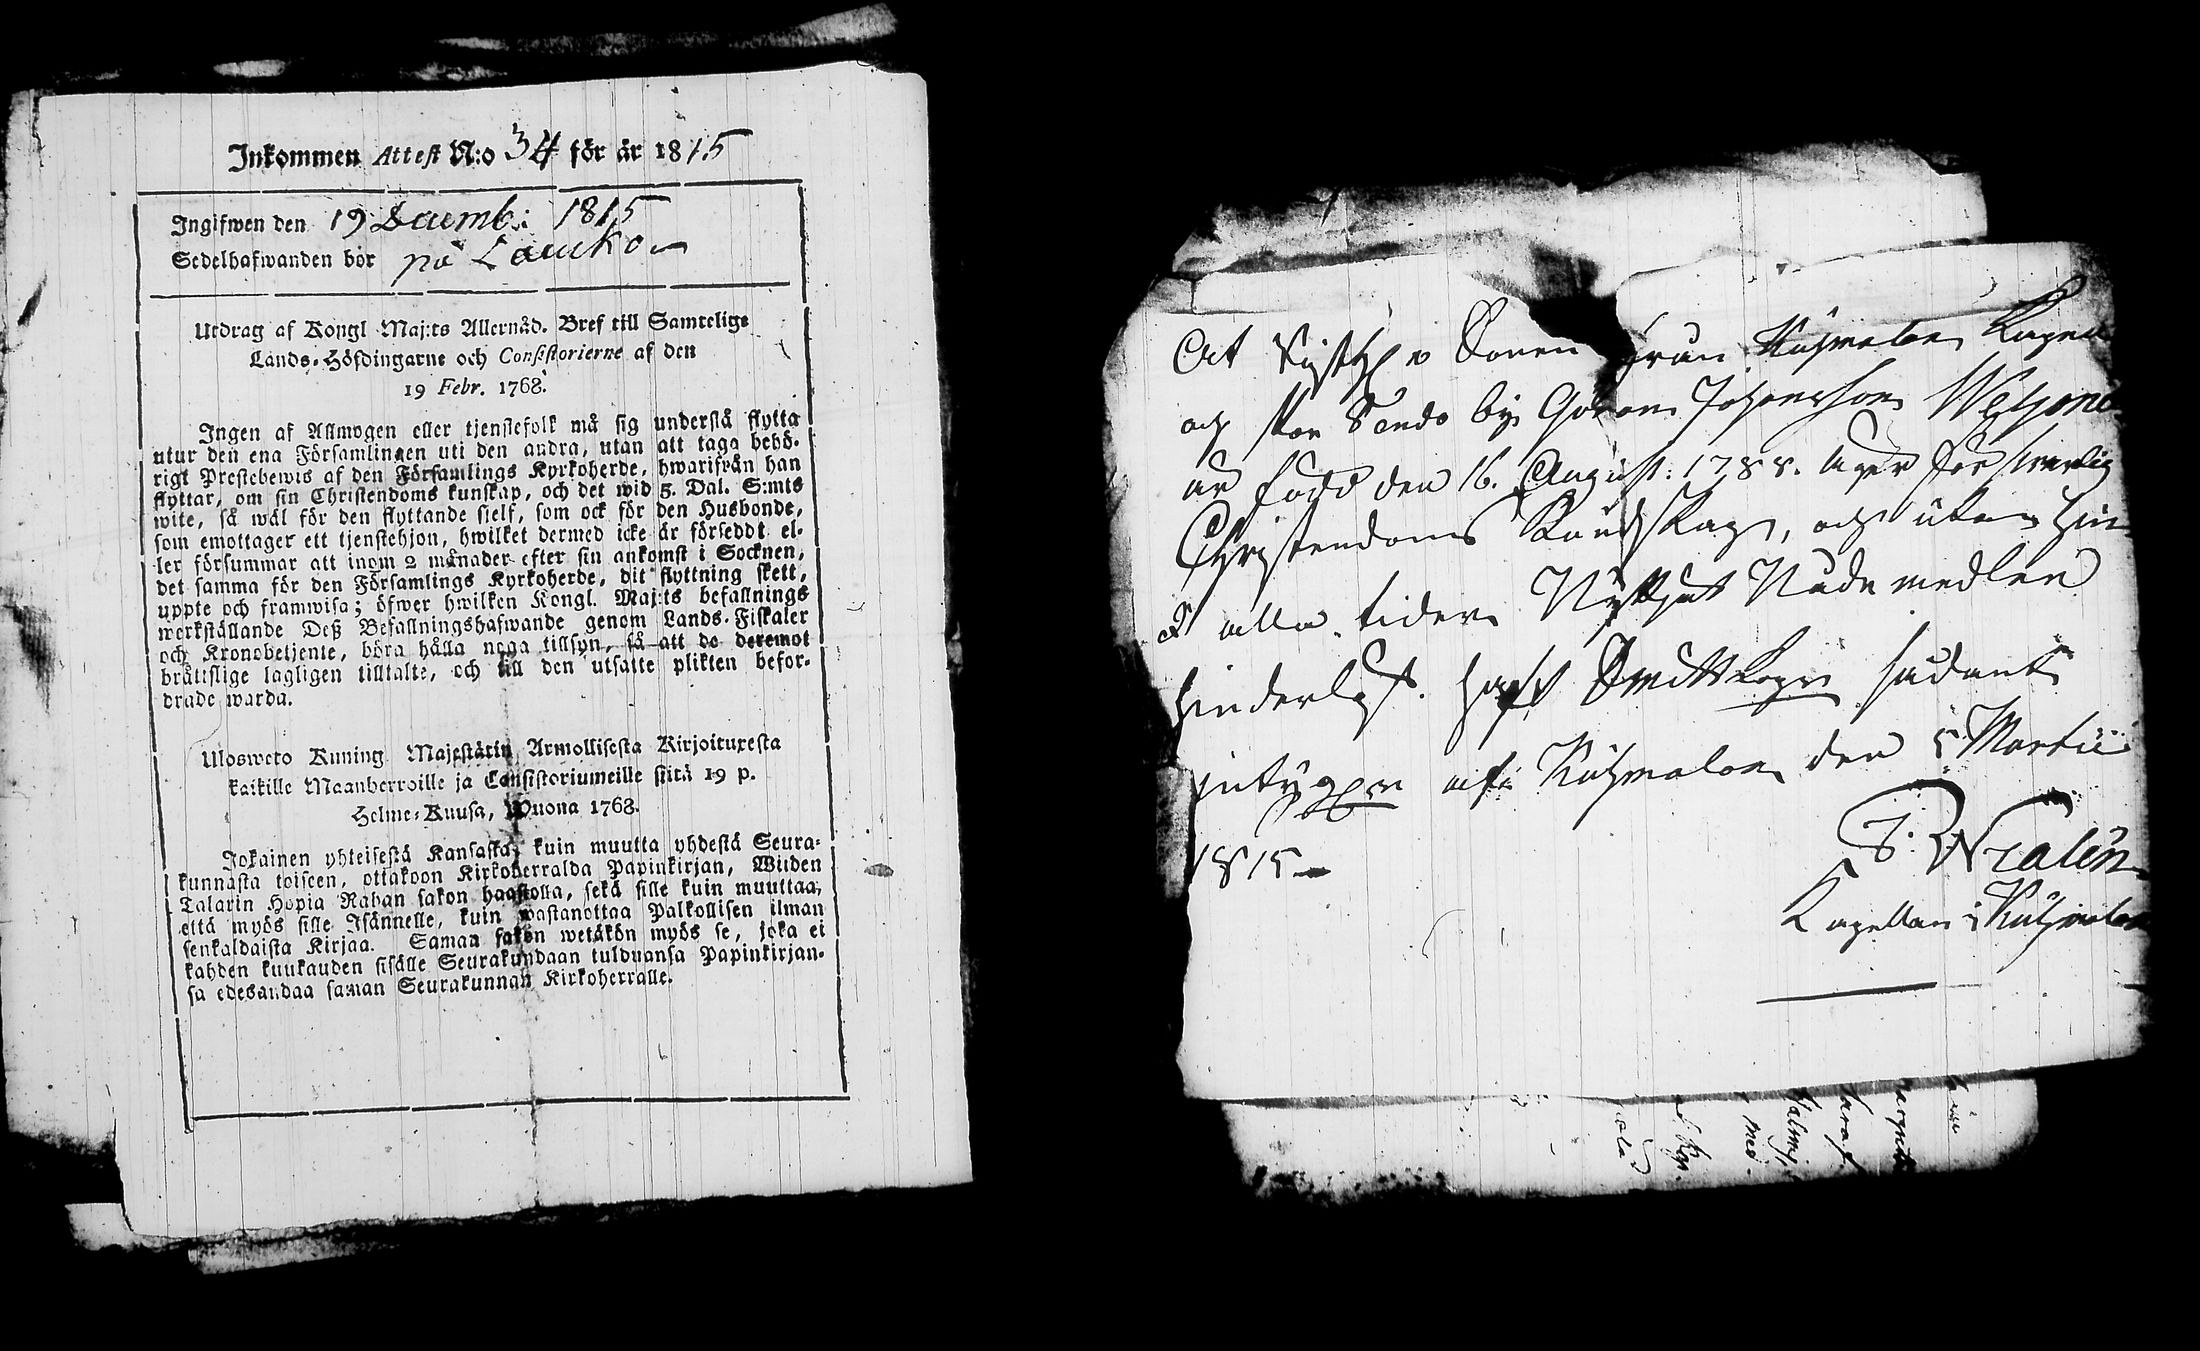 Inkommen Attest N:o 34 för år 1815
Ingifwen den 19 Decemb: 1815
Sedelhafwanden bor på Laucko
Utdrag af Kongl Maj:ts Allernåd. Bref till Samtelige
Lands-Höfdingarne och Consistorierne af den
19 Febr. 1768.
Ingen af Allmogen eller tjenstefolk må sig understå flytta
utur den ena Församlingen uti den andra, utan att taga behö-
rigt Prestebewis af den Församlings Kyrkoherde, hwarifrån han
flyttar, om sin Christendoms kunskap, och det wid 5. Dal. S:mts
wite, så wäl för den flyttande sielf, som ock för den Husbonde,
som emottager ett tjenstehjon, hwilket dermed icke är försedt el-
ler försummar att inom 2 månader efter sin ankomst i Socknen,
det samma för den Församlings Kyrkoherde, dit flyttning skett,
uppte och framwisa; öfwer hwilken Kongl. Maj:ts befallnings
werkställande Deß Befallningshafwande genom Lands-Fiskaler
och Kronobetjente, böra hålla noga tillsyn, så att de deremot
bråttslige lagligen tilltalte, och till den utsatte plikten befor-
drade warda.
Ulosweto Kuning. Majestätin Armollisesta Kirjoituxesta
kaikille Maanherroille ja Consistoriumeille siitä 19 p.
Helme-Kuusa, Wuona 1768.
Jokainen yhteisestä Kansasta, kuin muutta yhdestä Seura-
kunnasta toiseen, ottakoon Kirkoherralda Papinkirjan, Wiiden
Talarin Hopia Rahan sakon haastolla, sekä sille kuin muuttaa,
että myös sille Isännelle, kuin wastanottaa Palkollisen ilman
senkaldaista Kirjaa. Saman sakon wetäkön myös se, joka ei
kahden kuukauden sisälle Seurakundaan tulduansa Papinkirjan-
sa edesandaa saman Seurakunnan Kirkoherralle.
At Sonen från Kuhmalax
och by Göran Johansson
är född den 16. August: 1788. äger försvarlig
Christendoms Kundskap, och utan hin-
alla tider Nyttjat Nådemedlen
hinderlös haft sådant
intygar af Kuhmalax den 5 Martii
1815
Capellan i Kuhmalax